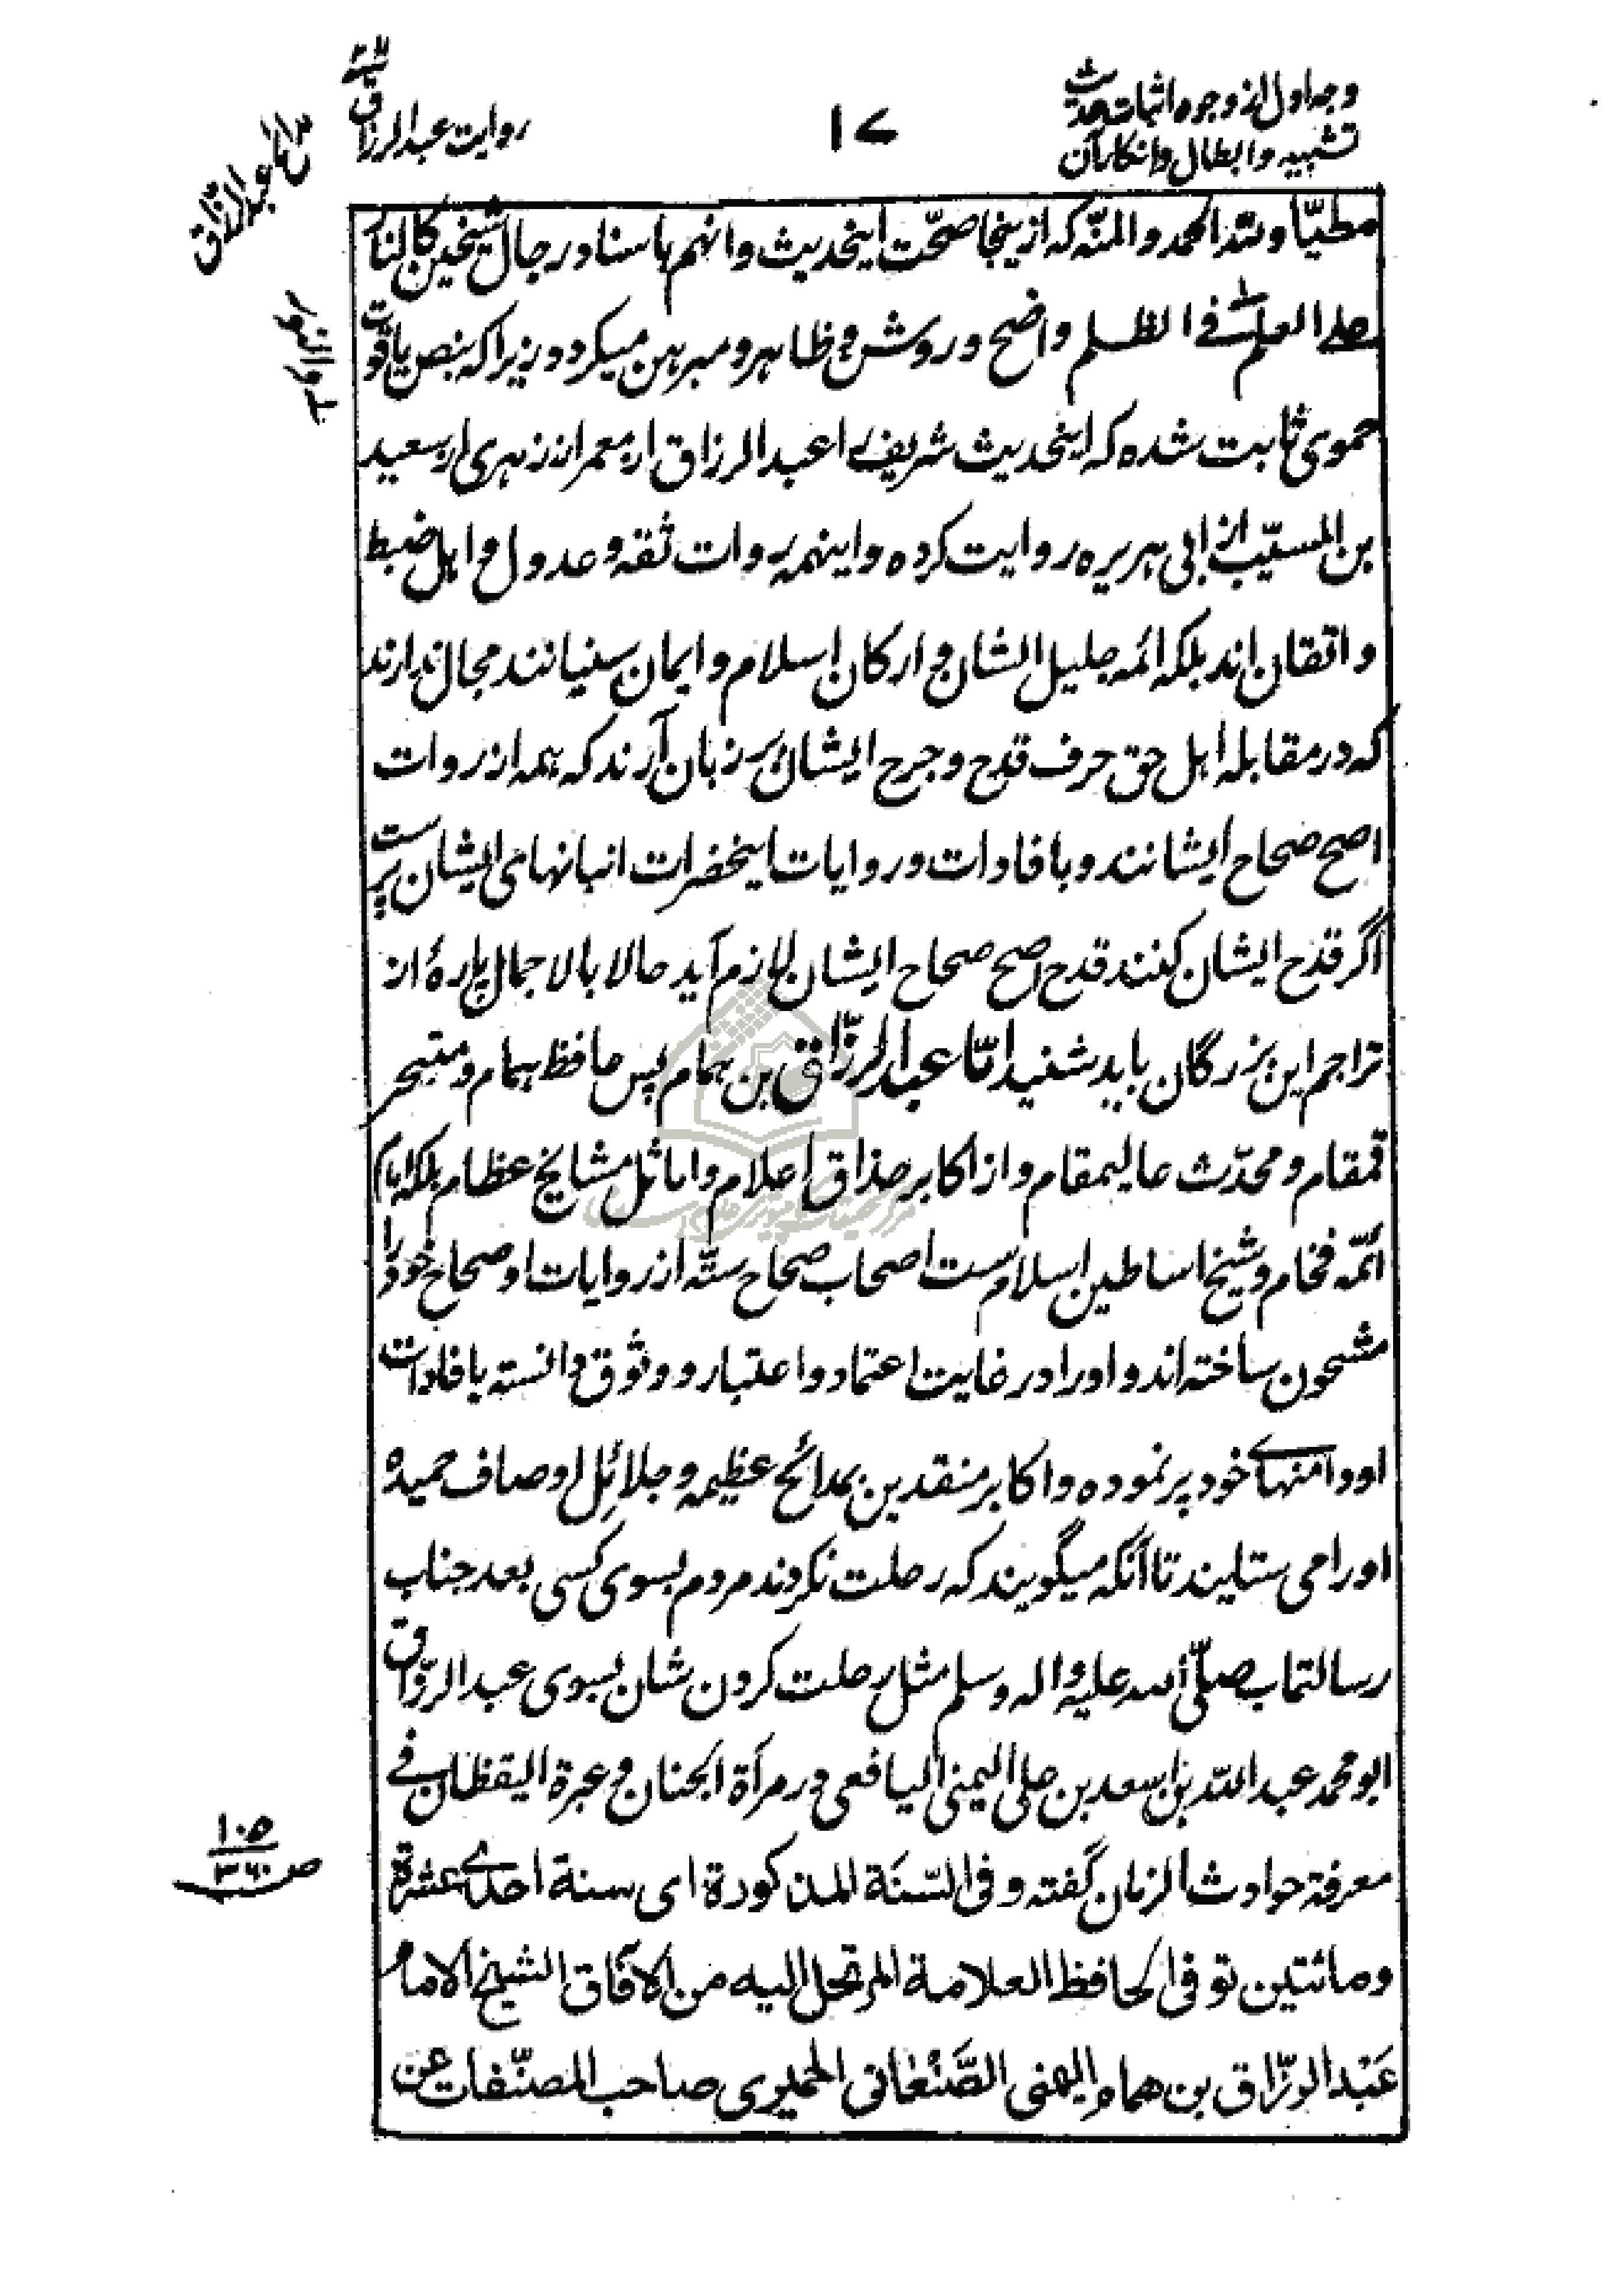 وجه اول از وجوه اثبات حدیث
تشبیه و ابطال و انکار آن
۱۷
روایت عبدالرزاق
عبدالرزاق
مطیّا و للّه الحمد و المنّه که ازینجا صحّت اینحدیث و انهم باسناد رجال شیخین کالنار
علی العلم فی الظلم واضح و روشن و ظاهر و مبرهن میگردد زیرا که بنص یاقوت
حموی ثابت شده که اینحدیث شریف را عبد الرزاق از معمر از زهری از سعید
بن المسیّب از ابی هریره روایت کرده و اینهمه روات ثقه و عدول و اهل ضبط
و اتقان اند بلکه ائمه جلیل الشان و ارکان اسلام و ایمان سنیانند مجال ندارند
که در مقابله اهل حق حرف قدح و جرح ایشان بر زبان آرند که همه از روات
اصح صحاح ایشانند و بافادات و روایات اینحضرات انبانهای ایشان پرست
اگر قدح ایشان کنند قدح اصح صحاح ایشان لازم آید حالا بالاجمال پارهٔ از
تراجم این بزرگان باید شنید امّا عبد الرزّاق بن همام پس حافظ همام و متبحر
قمقام و محدّث عالیمقام و از اکابر حذاق اعلام و اماثل مشایخ عظام بلکه امام
ائمّه فخام و شیخ اساطین اسلامست اصحاب صحاح ستّه از روایات او صحاح خود را
مشحون ساخته اند و او را در غایت اعتماد و اعتبار و وثوق دانسته بافادات
او دامنهای خود پر نموده و اکابر منقدین بمدائح عظیمه و جلائل اوصاف حمیده
او را می ستایند تا آنکه میگویند که رحلت نکردند مردم بسوی کسی بعد جناب
رسالتماب صلّی اللّه علیه و اله و سلم مثل رحلت کردن شان بسوی عبد الرزّاق
ابو محمد عبد اللّه بن اسعد بن علی الیمنی الیافعی در مرآة الجنان و عبرة الیقظان فی
معرفة حوادث الزمان گفته و فی السّنَة المذکورة ای سنة احدی عشرة
و مائتین توفی الحافظ العلامة المرتحل الیه من الآفاق الشیخ الامام
عَبْد الرزّاق بن همام الیمنی الصَّنْعانی الحمیری صاحب المصنّفات عن
۱۰۵
ص ۳۶۰